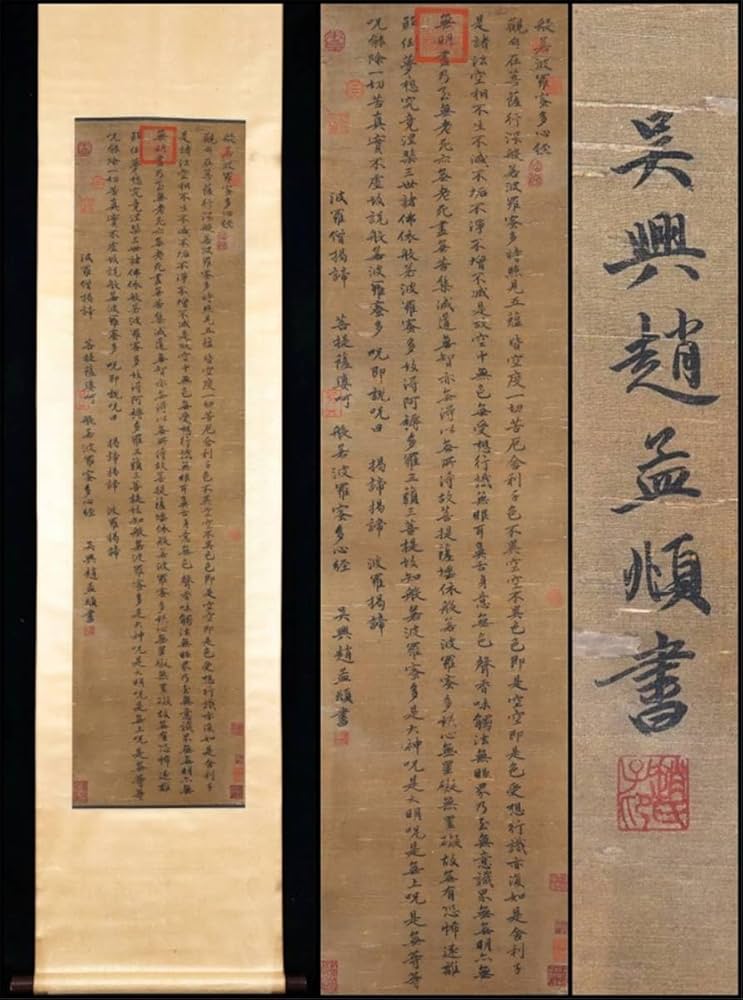 般若波羅蜜多心經
觀自在菩薩行深般若波羅蜜多時照見五蘊皆空度一切苦厄舍利子色不異空空不異色色即是空空即是色受想行識亦復如是舍利子
是諸法空相不生不滅不垢不淨不增不減是故空中無色無受想行識無眼耳鼻舌身意無色聲香味觸法無眼界乃至無意識界無無明亦無
無明盡乃至無老死亦無老死盡無苦集滅道無智亦無得以無所得故菩提薩埵依般若波羅蜜多故心無罣礙無罣礙故無有恐怖遠離
顛倒夢想究竟涅槃三世諸佛依般若波羅蜜多故得阿耨多羅三藐三菩提故知般若波羅蜜多是大神咒是大明咒是無上咒是無等等
咒能除一切苦真實不虛故說般若波羅蜜多 咒即說咒曰 揭諦揭諦 波羅揭諦
波羅僧揭諦 菩提薩婆訶 般若波羅蜜多心經 吳興趙孟頫書
吳興趙孟頫書
趙氏子昂